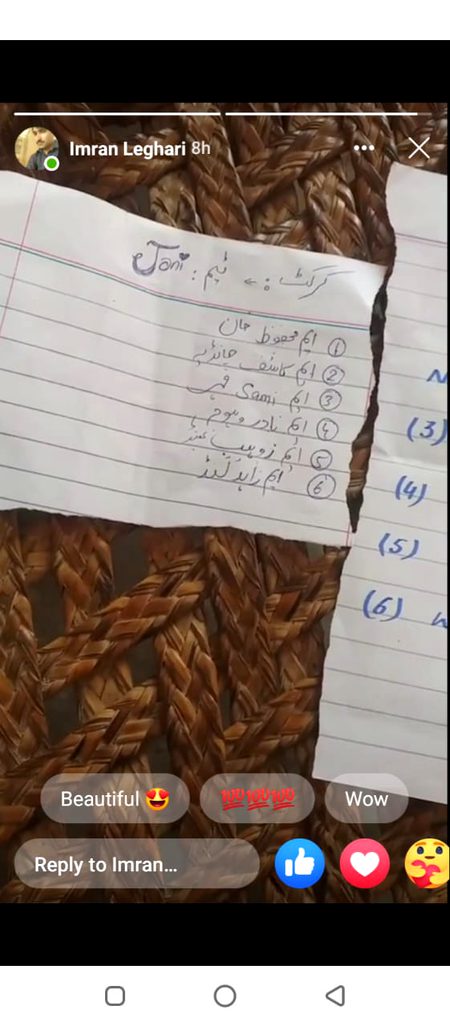 Imran Leghari 8h
کرکٹ :← ٹیم : Jani
① ایم محفوظ خان
② ایم کاشف چانڈیہ
③ ایم Sami
④ ایم نادر
⑤ ایم زوہیب
⑥ ایم زاہد لنڈ
N
(3)
(4)
(5)
(6)
Beautiful 😍
💯💯💯
Wow
Reply to Imran...